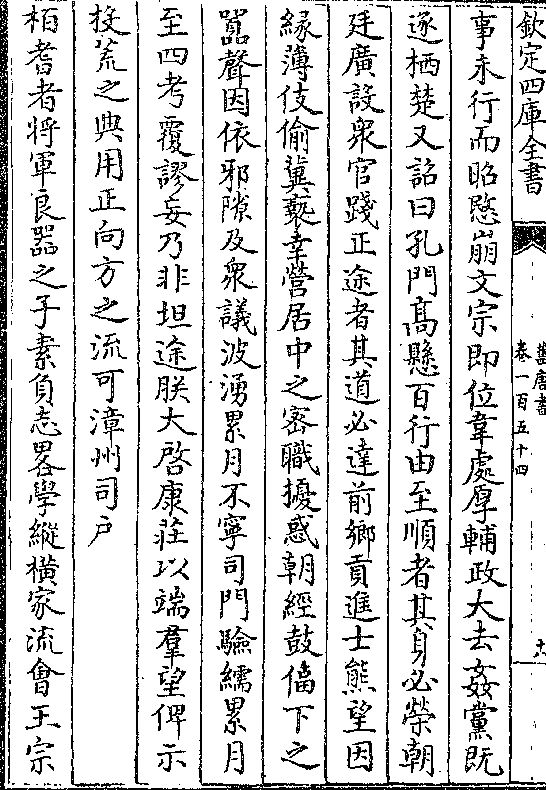 欽定四庫全書
舊唐書
卷一百五十四
事未行而昭愍崩文宗即位韋處厚輔政大去姦黨既
逐栖楚又詔曰孔門高懸百行由至順者其身必榮朝
廷廣設衆官踐正途者其道必達前鄉貢進士熊望因
緣薄伎偷冀褻幸營居中之密職擾惑朝經鼓偤下之
囂聲因依邪隙及衆議波湧累月不寧司門驗繻累月
至四考覆謬妄乃非坦途朕大啓康莊以端羣望俾示
投荒之典用正向方之流可漳州司户
栢耆者將軍良器之子素負志畧學縱橫家流會王宗